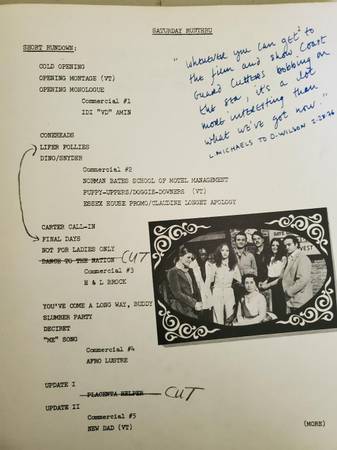 SATURDAY RUNTHRU
SHORT RUNDOWN:
COLD OPENING
OPENING MONTAGE (VT)
OPENING MONOLOGUE
Commercial #1
IDI "VD" AMIN
"Whenever you can get to
the film and show Coast
Guard Cutters bobbing on
the sea, it's a lot
more interesting than
what we've got now."
L. MICHAELS TO D. WILSON 2-28-76
CONEHEADS
LIFER FOLLIES
DINO/SNYDER
Commercial #2
NORMAN BATES SCHOOL OF MOTEL MANAGEMENT
PUPPY-UPPERS/DOGGIE-DOWNERS (VT)
ESSEX HOUSE PROMO/CLAUDINE LONGET APOLOGY
CARTER CALL-IN
FINAL DAYS
NOT FOR LADIES ONLY
DANCE TO THE NATION CUT
Commercial #3
H & L BROCK
YOU'VE COME A LONG WAY, BUDDY
SLUMBER PARTY
DECIRET
"ME" SONG
Commercial #4
AFRO LUSTRE
UPDATE I
PLACENTA HELPER CUT
UPDATE II
Commercial #5
NEW DAD (VT)
(MORE)